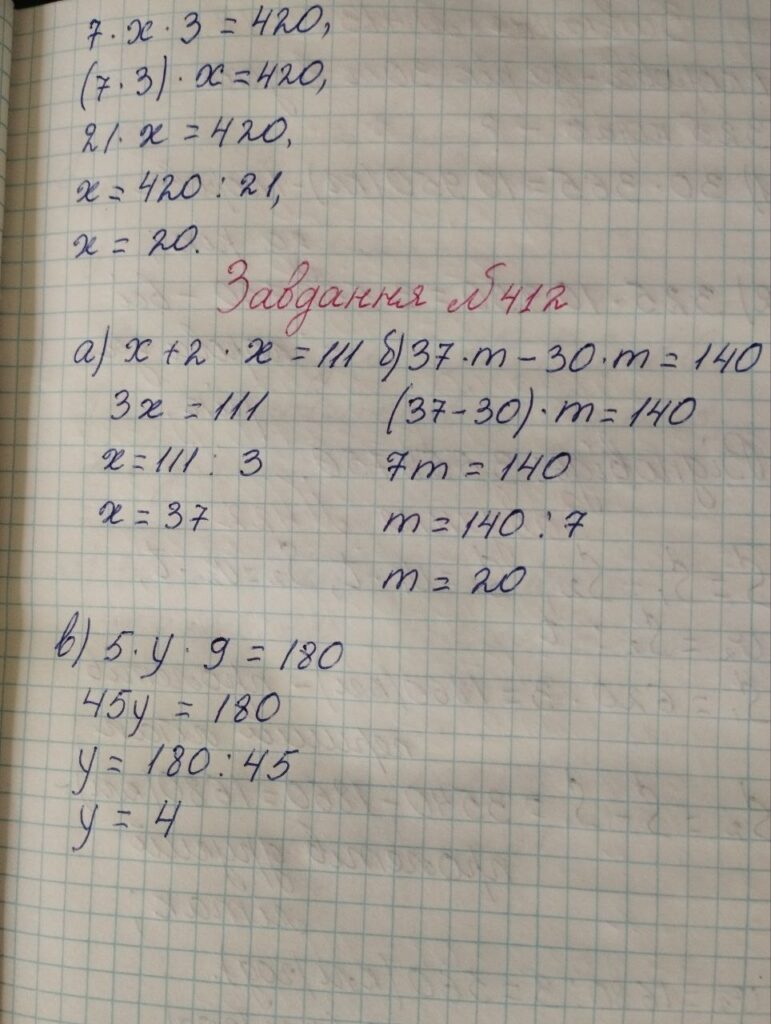 7 · x · 3 = 420,
(7 · 3) · x = 420,
21 · x = 420,
x = 420 : 21,
x = 20.
Завдання №412
а) x + 2 · x = 111
3x = 111
x = 111 : 3
x = 37
б) 37 · m - 30 · m = 140
(37 - 30) · m = 140
7m = 140
m = 140 : 7
m = 20
в) 5 · y · 9 = 180
45y = 180
y = 180 : 45
y = 4